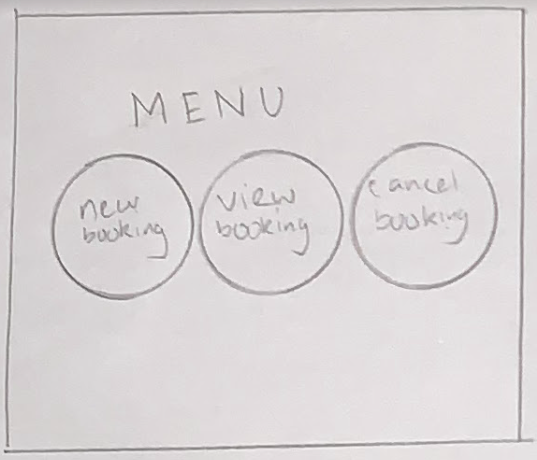 MENU
new
booking
view
booking
cancel
booking